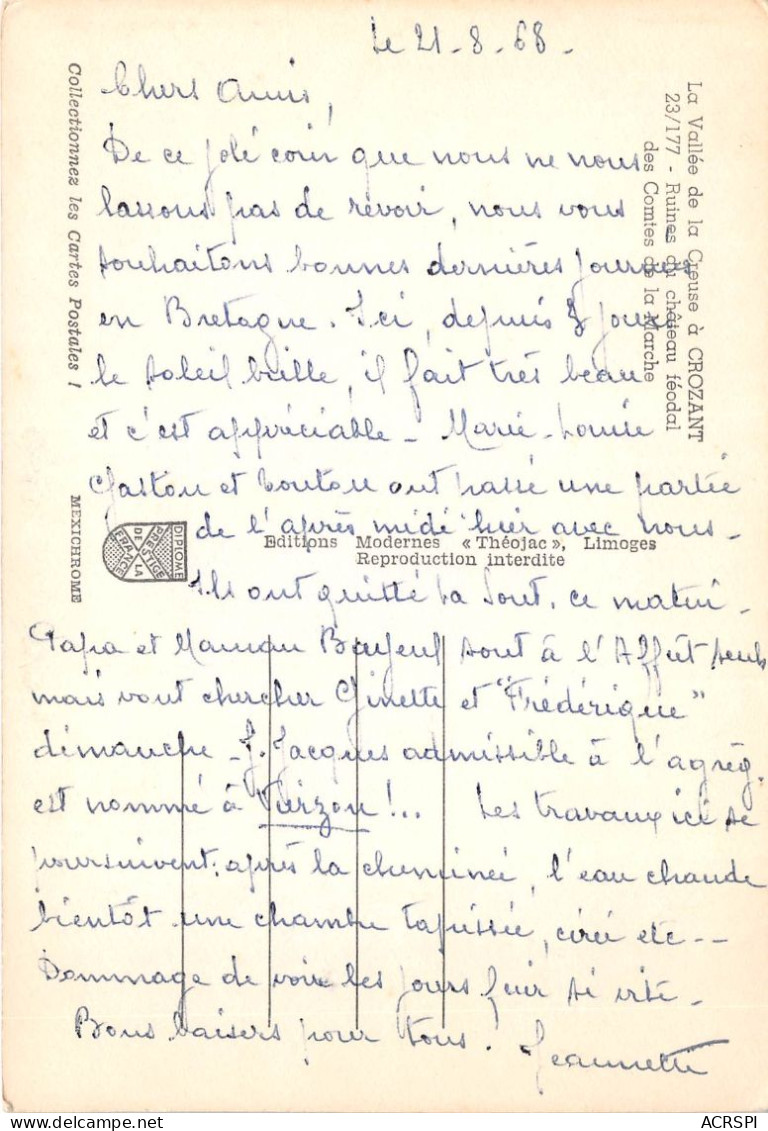 Le 21-8-68-
Chers Amis,
De ce joli coin que nous ne nous
lassons pas de revoir, nous vous
souhaitons bonnes dernières journées
en Bretagne. Ici, depuis 3 jours
le soleil brille, il fait très beau
et c'est appréciable - Marie-Louise
Gaston et Loulou ont passé une partie
de l'après midi hier avec nous-
Ils ont quitté La Sout. ce matin-
Papa et Maman sont à l'Affût seuls
mais vont chercher Ginette et "Frédérique"
dimanche - J. Jacques admissible à l'agrég.
est nommé à Vierzon !.. Les travaux ici se
poursuivent: après la cheminée, l'eau chaude
bientôt une chambre tapissée, cirée etc--
Dommage de voir les jours fuir si vite-
Bons baisers pour tous! Jeannette
La Vallée de la Creuse à CROZANT
23/177 - Ruines du château féodal
des Comtes de la Marche
Collectionnez les Cartes Postales !
MEXICHROME
DIPLOME
PRESTIGE
DE LA
FRANCE
Editions Modernes « Théojac », Limoges
Reproduction interdite
ACRSPI